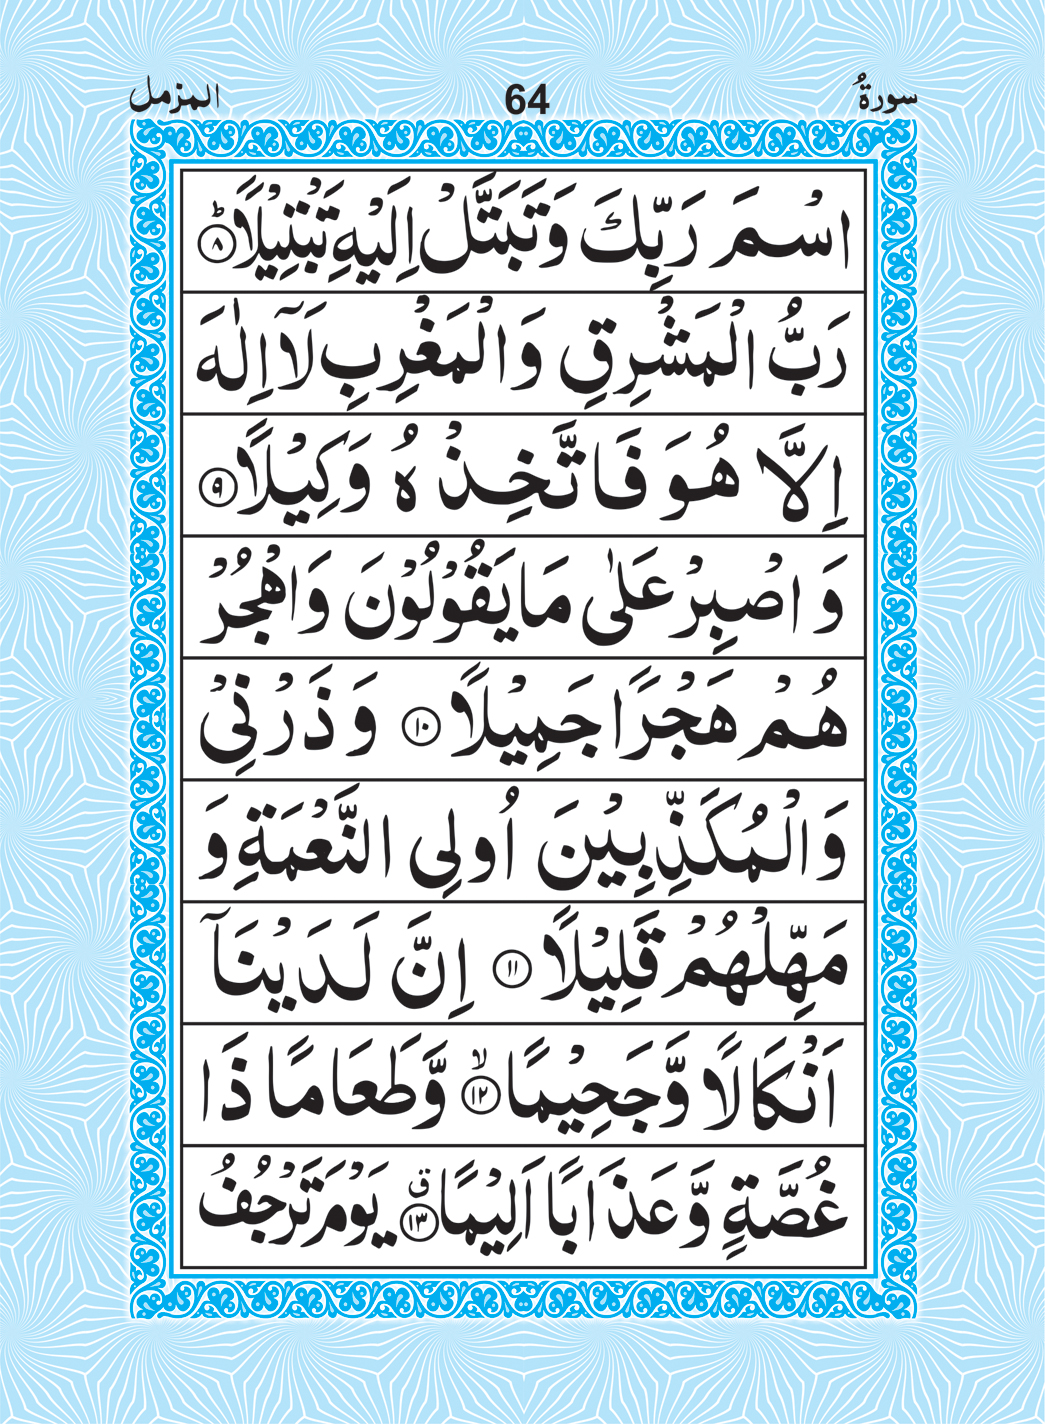 سورةُ 64 المزمل
اسْمَ رَبِّكَ وَتَبَتَّلْ اِلَيْهِ تَبْتِيْلًا ؕ ۝۸
رَبُّ الْمَشْرِقِ وَالْمَغْرِبِ لَاۤ اِلٰهَ
اِلَّا هُوَ فَاتَّخِذْهُ وَكِيْلًا ۝۹
وَاصْبِرْ عَلٰى مَا يَقُوْلُوْنَ وَاهْجُرْ
هُمْ هَجْرًا جَمِيْلًا ۝۱۰ وَذَرْنِيْ
وَالْمُكَذِّبِيْنَ اُولِى النَّعْمَةِ وَ
مَهِّلْهُمْ قَلِيْلًا ۝۱۱ اِنَّ لَدَيْنَاۤ
اَنْكَالًا وَّجَحِيْمًا ۙ ۝۱۲ وَّطَعَامًا ذَا
غُصَّةٍ وَّعَذَابًا اَلِيْمًا ۝۱۳ ق يَوْمَ تَرْجُفُ